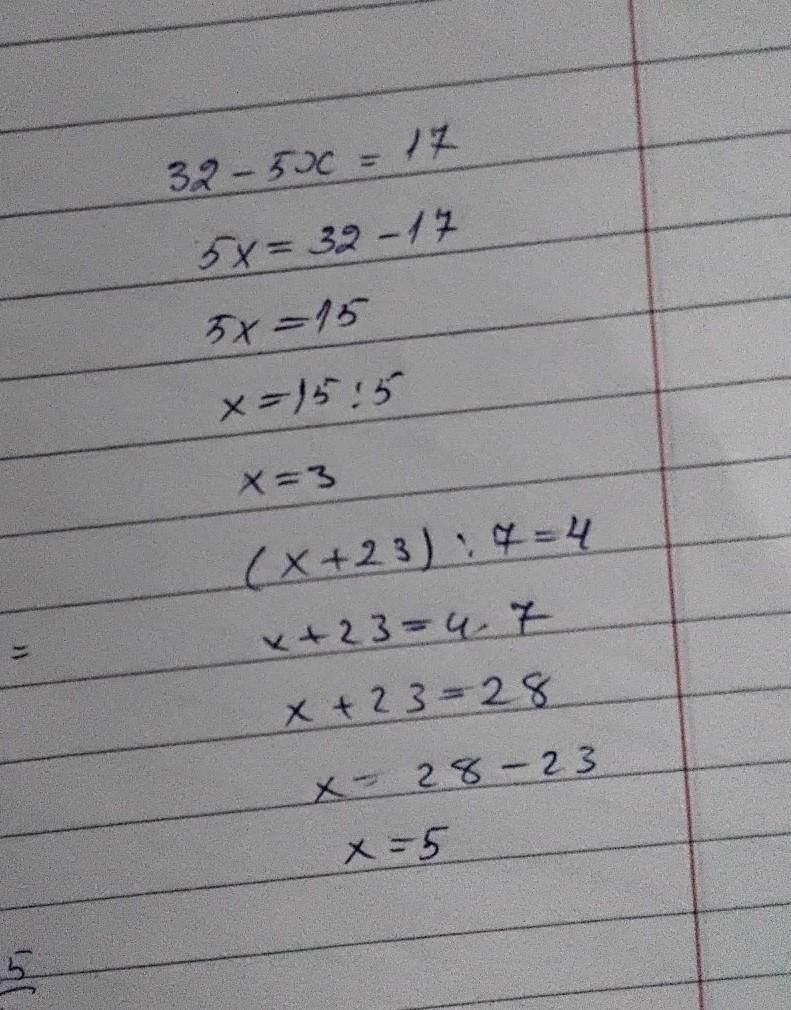 32 - 5x = 17
5x = 32 - 17
5x = 15
x = 15 : 5
x = 3
(x + 23) : 7 = 4
=
x + 23 = 4 . 7
x + 23 = 28
x = 28 - 23
x = 5
5